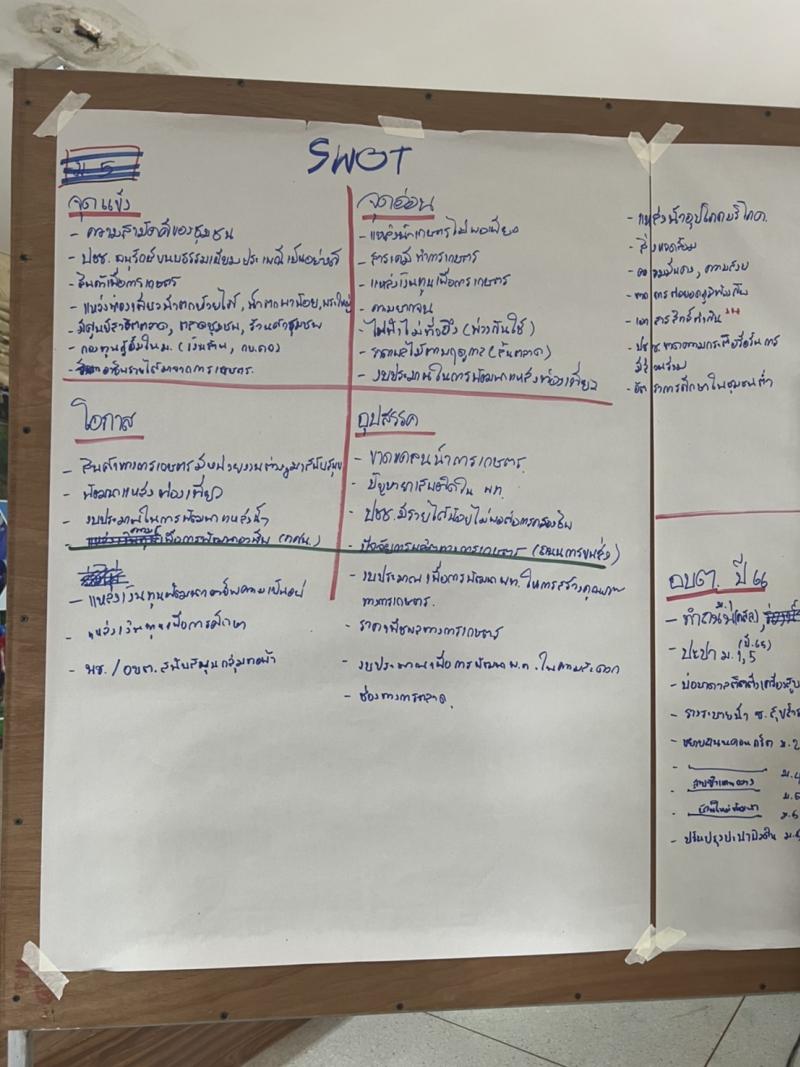 SWOT
ม.5
จุดแข็ง
- ความสามัคคีของชุมชน
- ปชช. อนุรักษ์ขนบธรรมเนียมประเพณีเป็นอย่างดี
- สินค้าเพื่อการเกษตร
- แหล่งท่องเที่ยวน้ำตกห้วยใต้, น้ำตกผาน้อย,
- มีศูนย์สาธิตตลาด, ตลาดชุมชน, ร้านค้าชุมชน
- กองทุนกู้ยืมใน ม. (เงินล้าน, กข.คจ)
- อาชีพรายได้มาจากการเกษตร.
จุดอ่อน
- แหล่งน้ำเกษตรไม่พอเพียง
- สารเคมีทำการเกษตร
- แหล่งเงินทุนเพื่อการเกษตร
- ความยากจน
- ไฟฟ้าไม่ทั่วถึง (พ่วงกันใช้)
- ไม่ตามฤดูกาล (ล้นตลาด)
- งบประมาณในการพัฒนาแหล่งท่องเที่ยว
- แหล่งน้ำอุปโภคบริโภค.
- สิ่งแวดล้อม
- ความมั่นคง, ความสงบ
- ขาดการต่อยอดภูมิท้องถิ่น
- เอกสารสิทธิ์ทำกิน
- ปชช ขาดความกระตือรือร้นการ
มีส่วนร่วม
- อัตราการศึกษาในชุมชนต่ำ
โอกาส
- สินค้าทางการเกษตรมีหน่วยงานต่างๆมาสนับสนุน
- พัฒนาแหล่งท่องเที่ยว
- งบประมาณในการพัฒนาแหล่งน้ำ
- เพื่อการพัฒนาอาชีพ (กศน.)
- แหล่งเงินทุนพัฒนาอาชีพความเป็นอยู่
- แหล่งเงินทุนเพื่อการศึกษา
- พช. / อบต. สนับสนุนกลุ่มทอผ้า
อุปสรรค
- ขาดแคลนน้ำการเกษตร.
- ปัญหายาเสพติดใน พท.
- ปชช. มีรายได้น้อยไม่พอต่อการครองชีพ
- ปัจจัยการผลิตทางการเกษตร (ถนนการขนส่ง)
- งบประมาณเพื่อการพัฒนา พท. ในการสร้างคุณภาพ
ทางการเกษตร.
- ราคาพืชผลทางการเกษตร
- งบประมาณเพื่อการพัฒนา พ.ท. ในความสะดวก
- ช่องทางการตลาด.
อบต. ปี 66
- ทำถนน (คสล),
- ประปา ม. 1,5 (ปี.65)
- บ่อบาดาลติดตั้งเครื่องสูบ
- รางระบายน้ำ ซ.
- ขยายถนนคอนกรีต ม.2
- ม.4
- ม.5
- ม.5
- ปรับปรุงประปา ม.